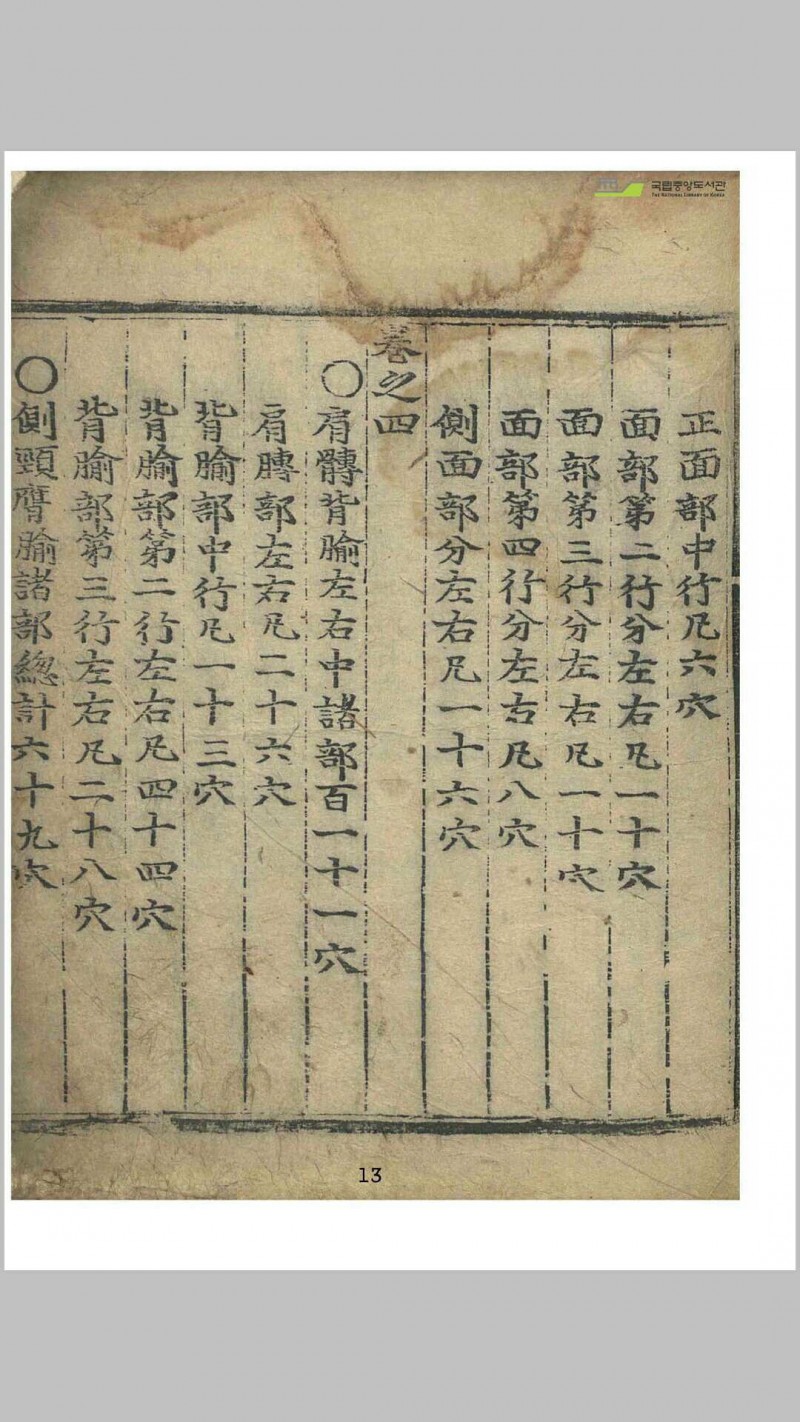 국립중앙도서관
THE NATIONAL LIBRARY OF KOREA
正面部中行凡六穴
面部第二行分左右凡一十穴
面部第三行分左右凡一十穴
面部第四行分左右凡八穴
側面部分左右凡一十六穴
卷之四
〇肩髆背腧左右中諸部百一十一穴
肩膊部左右凡二十六穴
背腧部中行凡一十三穴
背腧部第二行左右凡四十四穴
背腧部第三行左右凡二十八穴
〇側頸膺腧諸部緫計六十九穴
13